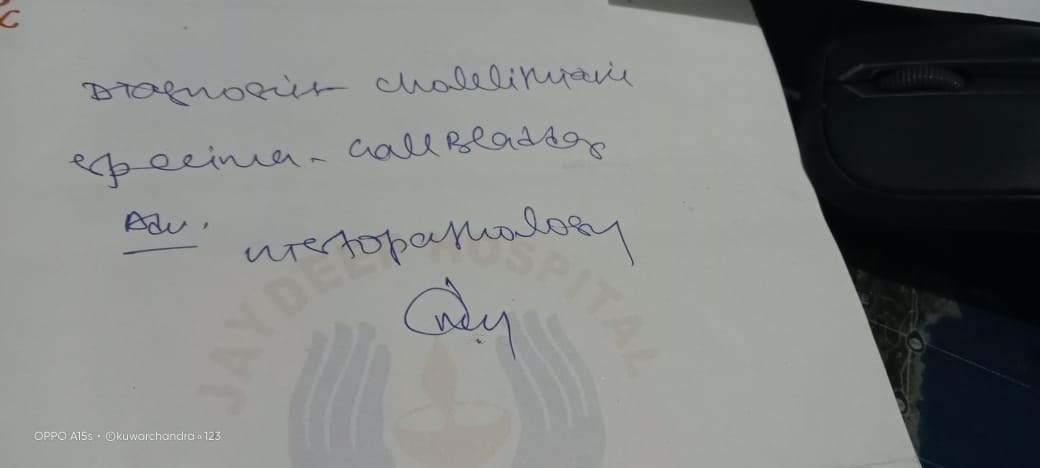 c
Diagnosis - cholelithiasis
specimen - Gall Bladder
Adv.
Histopathology
JAYDEEP HOSPITAL
OPPO A15s • ©kuwarchandra∘123